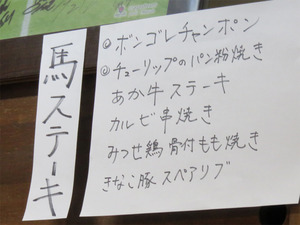 馬ステーキ
◎ボンゴレチャンポン
◎チューリップのパン粉焼き
あか牛ステーキ
カルビ串焼き
みつせ鶏骨付もも焼き
きなこ豚スペアリブ